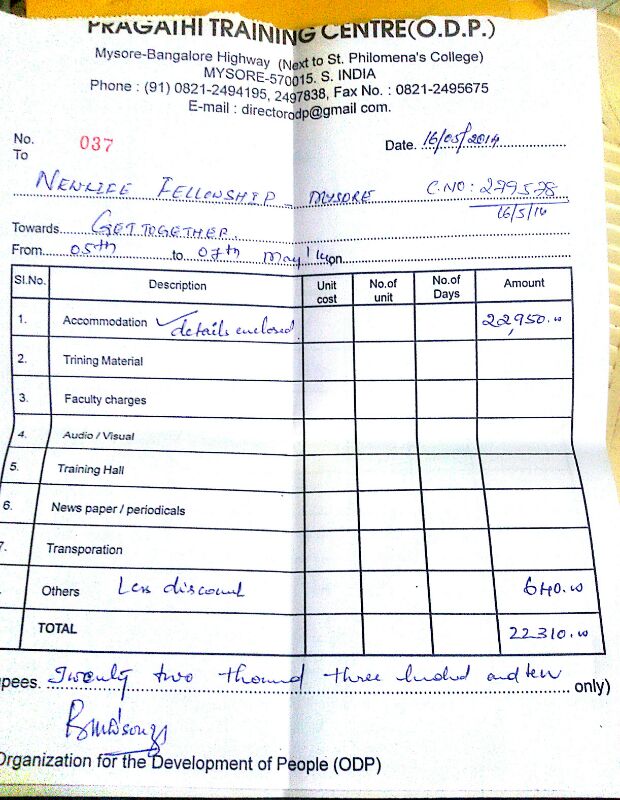 PRAGATHI TRAINING CENTRE(O.D.P.)
Mysore-Bangalore Highway (Next to St. Philomena's College)
MYSORE-570015. S. INDIA
Phone : (91) 0821-2494195, 2497838, Fax No. : 0821-2495675
E-mail : directorodp@gmail com.
No. 037 Date. 16/05/2014
To
NEWLIFE FELLOWSHIP - MYSORE C.NO: 279578
16/5/14
Towards GET TOGETHER.
From 05th to 07th May'14 on
Sl.No. Description Unit cost No.of unit No.of Days Amount
1. Accommodation details enclosed 22,950.00
2. Trining Material
3. Faculty charges
4. Audio / Visual
5. Training Hall
6. News paper / periodicals
7. Transporation
Others Less discount 640.00
TOTAL 22310.00
pees. Twenty two thound three hudred and ten only)
Organization for the Development of People (ODP)